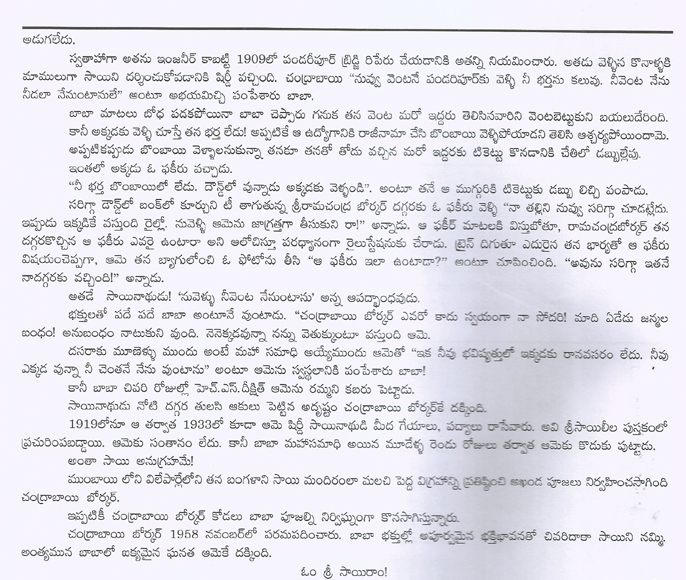 అడుగలేదు.
స్వతాహాగా అతను ఇంజనీర్ కాబట్టి 1909లో పండరీపూర్ బ్రిడ్జి రిపేరు చేయడానికి అతన్ని నియమించారు. అతడు వెళ్ళిన కొనాళ్ళకి
మామూలుగా సాయిని దర్శించుకోపడానికి షిర్డీ వచ్చింది. చంద్రాబాయి "నువ్వు వెంటనే పండరిపూర్‌కు వెళ్ళి నీ భర్తను కలువు. నీవెంట నేను
నీడలా నేనుంటానులే" అంటూ అభయమిచ్చి పంపేశారు బాబా.
బాబా మాటలు బోధ పడకపోయినా బాబా చెప్పారు గనుక తన వెంట మరో ఇద్దరు తెలిసినవారిని వెంటబెట్టుకుని బయలుదేరింది.
కానీ అక్కడకు వెళ్ళి చూస్తే తన భర్త లేడు! అప్పటికే ఆ ఉద్యోగానికి రాజీనామా చేసి బొంబాయి వెళ్ళిపోయాడని తెలిసి ఆశ్చర్యపోయిందామె.
అప్పటికప్పుడు బొంబాయి వెళ్ళాలనుకున్నా తనకూ తనతో తోడు వచ్చిన మరో ఇద్దరకు టికెట్టు కొనడానికి చేతిలో డబ్బుల్లేవు.
ఇంతలో అక్కడు ఓ ఫకీరు వచ్చాడు.
"నీ భర్త బొంబాయిలో లేదు. దౌన్డ్‌లో వున్నాడు అక్కడకు వెళ్ళండి". అంటూ తనే ఆ ముగ్గురికి టికెట్టుకు డబ్బు లిచ్చి పంపాడు.
సరిగ్గా దౌన్డ్‌లో బంక్‌లో కూర్చుని టీ తాగుతున్న శ్రీరామచంద్ర బోర్కర్ దగ్గరకు ఓ ఫకీరు వెళ్ళి "నా తల్లిని నువ్వు సరిగ్గా చూడట్లేదు.
ఇప్పుడు ఇక్కడికే వస్తుంది రైల్లో. నువెళ్ళి ఆమెను జాగ్రత్తగా తీసుకుని రా!" అన్నాడు. ఆ ఫకీర్ మాటలకి విస్తుబోతూ, రామచంద్రబోర్కర్ తన
దగ్గరకొచ్చిన ఆ ఫకీరు ఎవరై ఉంటారా అని ఆలోచిస్తూ పరధ్యానంగా రైలుస్టేషనుకు చేరాడు. ట్రైన్ దిగుతూ ఎదురైన తన భార్యతో ఆ ఫకీరు
విషయంచెప్పగా, ఆమె తన బ్యాగులోంచి ఓ ఫోటోను తీసి "ఆ ఫకీరు ఇలా ఉంటాడా?" అంటూ చూపించింది. "అవును సరిగ్గా ఇతనే
నాదగ్గరకు వచ్చింది!" అన్నాడు.
అతడే సాయినాథుడు! 'నువెళ్ళు నీవెంట నేనుంటాను' అన్న ఆపద్భాంధవుడు.
భక్తులతో పదే పదే బాబా అంటూనే వుంటాడు. "చంద్రాబాయి బోర్కర్ ఎవరో కాదు స్వయంగా నా సోదరి! మాది ఏడేడు జన్మల
బంధం! అనుబంధం నాటుకుని వుంది. నెనెక్కడవున్నా నన్ను వెతుక్కుంటూ వస్తుంది ఆమె.
దసరాకు మూణెళ్ళు ముందు అంటే మహా సమాధి అయ్యేముందు ఆమెతో "ఇక నీవు భవిష్యత్తులో ఇక్కడకు రానవసరం లేదు. నీవు
ఎక్కడ వున్నా నీ చెంతనే నేను వుంటాను" అంటూ ఆమెను స్వస్థలానికి పంపేశారు బాబా!
కానీ బాబా చివరి రోజుల్లో హెచ్.ఎస్.దీక్షిత్ ఆమెను రమ్మని కబరు పెట్టాడు.
సాయినాథుడు నోటి దగ్గర తులసి ఆకులు పెట్టిన అదృష్టం చంద్రాబాయి బోర్కర్‌కే దక్కింది.
1919లోనూ ఆ తర్వాత 1933లో కూడా ఆమె షిర్డీ సాయినాథుడి మీద గేయాలు, పద్యాలు రాసేవారు. అవి శ్రీసాయిలీల పుస్తకంలో
ప్రచురింపబడ్డాయి. ఆమెకు సంతానం లేదు. కానీ బాబా మహాసమాధి అయిన మూడేళ్ళ రెండు రోజులు తర్వాత ఆమెకు కొడుకు పుట్టాడు.
అంతా సాయి అనుగ్రహమే!
ముంబాయి లోని విలేపార్లేలోని తన బంగళాని సాయి మందిరంలా మలచి పెద్ద విగ్రహాన్ని ప్రతిష్ఠించి అఖండ పూజలు నిర్వహించసాగింది
చంద్రాబాయి బోర్కర్.
ఇప్పటికీ చంద్రాబాయి బోర్కర్ కోడలు బాబా పూజల్ని నిర్విఘ్నంగా కొనసాగిస్తున్నారు.
చంద్రాబాయి బోర్కర్ 1958 నవంబర్‌లో పరమపదించారు. బాబా భక్తుల్లో అపూర్వమైన భక్తిభావనతో చివరిదాకా సాయిని నమ్మి
అంత్యమున బాబాలో ఐక్యమైన ఘనత ఆమెకే దక్కింది.
ఓం శ్రీ సాయిరాం!